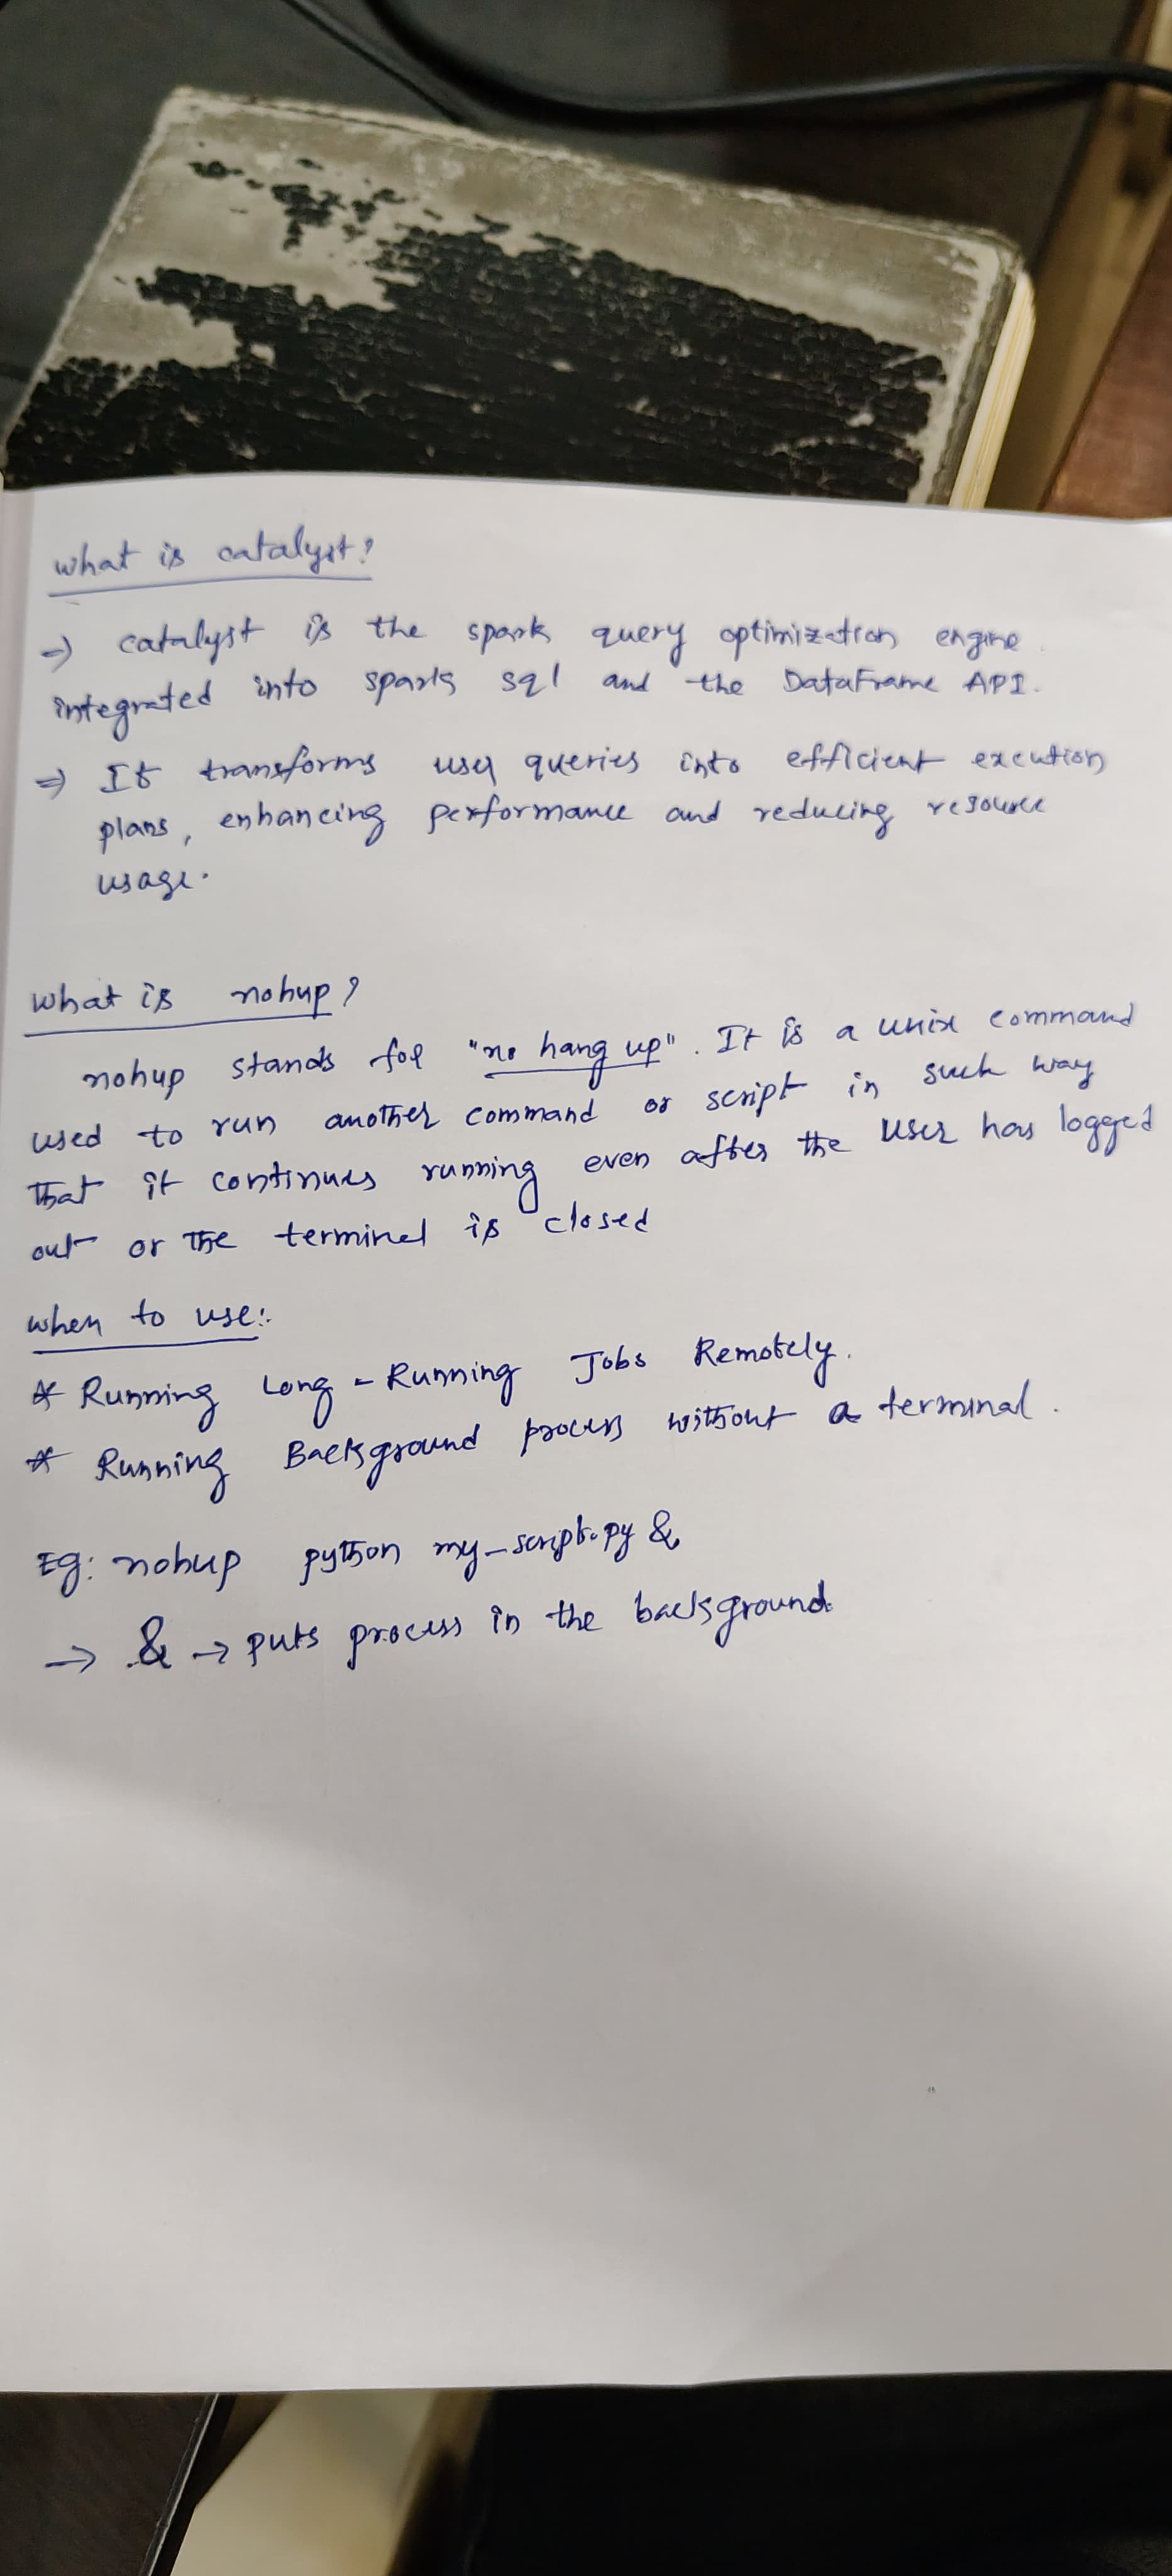 what is catalyst?
⇒ catalyst is the spark query optimization engine.
integrated into spark sql and the DataFrame API.
⇒ It transforms user queries into efficient execution
plans, enhancing performance and reducing resource
usage.
what is nohup?
nohup stands for "no hang up". It is a unix command
used to run another command or script in such way
that it continues running even after the user has logged
out or the terminal is closed
when to use:
* Running Long-Running Jobs Remotely.
* Running Background process without a terminal.
Eg: nohup python my_script.py &
→ & → puts process in the background.